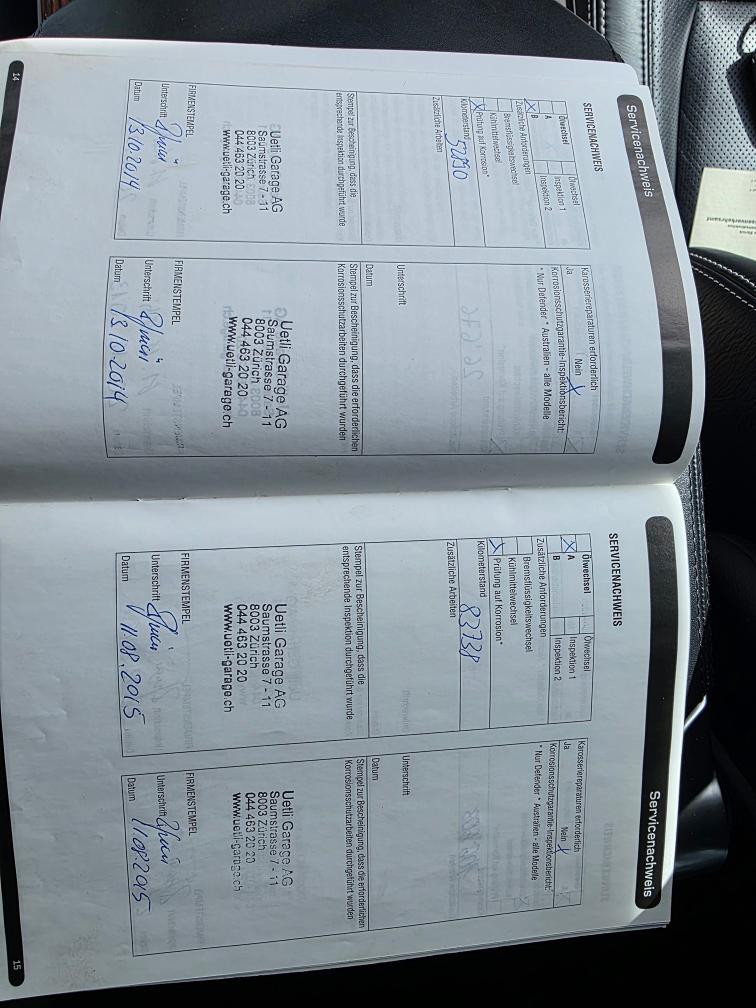 Servicenachweis
SERVICENACHWEIS
Ölwechsel
Ölwechsel
A
Inspektion 1
X B
Inspektion 2
Zusätzliche Anforderungen
Bremsflüssigkeitswechsel
Kühlmittelwechsel
X Prüfung auf Korrosion*
Kilometerstand
Zusätzliche Arbeiten
Stempel zur Bescheinigung, dass die
entsprechende Inspektion durchgeführt wurde
Uetli Garage AG
Saumstrasse 7 - 11
8003 Zürich
044 463 20 20
www.uetli-garage.ch
FIRMENSTEMPEL
Unterschrift
Datum 13.10.2014
Karosseriereparaturen erforderlich
Ja Nein X
Korrosionsschutzgarantie-Inspektionsbericht:
* Nur Defender * Australien - alle Modelle
Unterschrift
Datum
Stempel zur Bescheinigung, dass die erforderlichen
Korrosionsschutzarbeiten durchgeführt wurden
Uetli Garage AG
Saumstrasse 7 - 11
8003 Zürich
044 463 20 20
www.uetli-garage.ch
FIRMENSTEMPEL
Unterschrift
Datum 13.10.2014
14
Servicenachweis
SERVICENACHWEIS
Ölwechsel
Ölwechsel
X A
Inspektion 1
B
Inspektion 2
Zusätzliche Anforderungen
Bremsflüssigkeitswechsel
Kühlmittelwechsel
X Prüfung auf Korrosion*
Kilometerstand 83738
Zusätzliche Arbeiten
Stempel zur Bescheinigung, dass die
entsprechende Inspektion durchgeführt wurde
Uetli Garage AG
Saumstrasse 7 - 11
8003 Zürich
044 463 20 20
www.uetli-garage.ch
FIRMENSTEMPEL
Unterschrift
Datum 11.08.2015
Karosseriereparaturen erforderlich
Ja Nein X
Korrosionsschutzgarantie-Inspektionsbericht:
* Nur Defender * Australien - alle Modelle
Unterschrift
Datum
Stempel zur Bescheinigung, dass die erforderlichen
Korrosionsschutzarbeiten durchgeführt wurden
Uetli Garage AG
Saumstrasse 7 - 11
8003 Zürich
044 463 20 20
www.uetli-garage.ch
FIRMENSTEMPEL
Unterschrift
Datum 11.08.2015
15